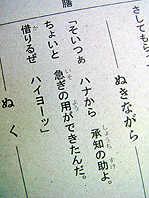 さしてもらっ
ぬきながら
「そいつぁ　ハナから　承知の助よ。
ちょいと　急ぎの用ができたんだ。
借りるぜ　ハイヨーッ」
ぬく